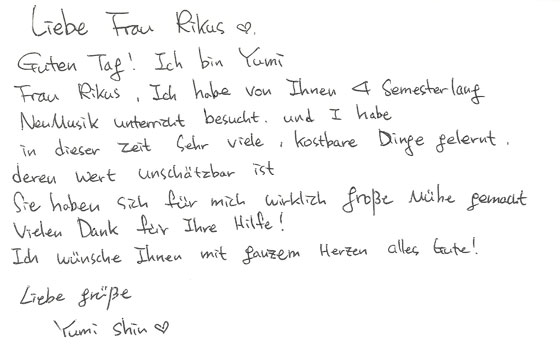 Liebe Frau Rikus ♡.
Guten Tag! Ich bin Yumi
Frau Rikus, Ich habe von Ihnen 4 Semesterlang
NeuMusik unterricht besucht. und I habe
in dieser zeit Sehr viele, kostbare Dinge gelernt.
deren wert unschätzbar ist
Sie haben sich für mich wirklich große Mühe gemacht
Vielen Dank für Ihre Hilfe!
Ich wünsche Ihnen mit ganzem Herzen alles Gute!
Liebe größe
Yumi Shin ♡